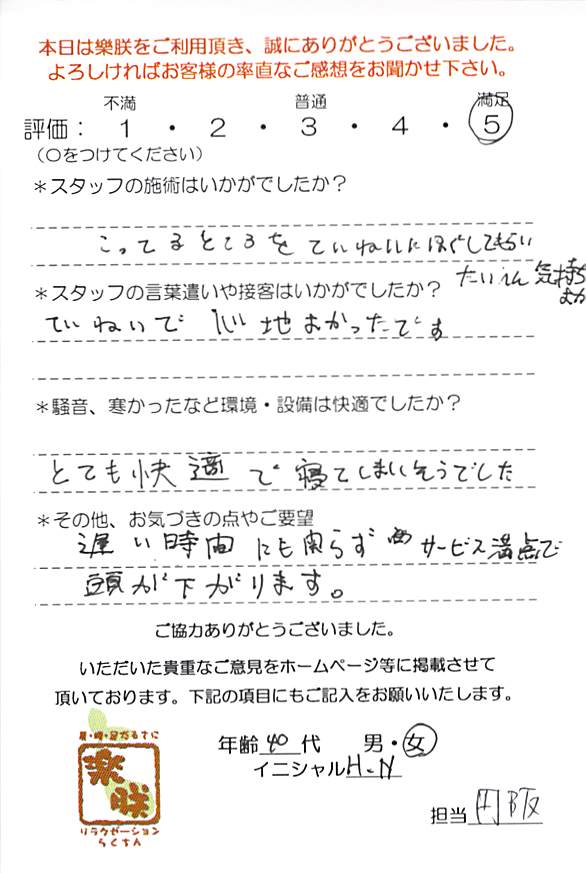 本日は樂朕をご利用頂き、誠にありがとうございました。
よろしければお客様の率直なご感想をお聞かせ下さい。
不満 普通 満足
評価： 1 ・ 2 ・ 3 ・ 4 ・ 5
（○をつけてください）
＊スタッフの施術はいかがでしたか？
こってるところをていねいにほぐしてもらい
たいへん気持ち
よか
＊スタッフの言葉遣いや接客はいかがでしたか？
ていねいで 心地よかったです
＊騒音、寒かったなど環境・設備は快適でしたか？
とても快適で寝てしまいそうでした
＊その他、お気づきの点やご要望
遅い時間にも関らず サービス満点で
頭が下がります。
ご協力ありがとうございました。
いただいた貴重なご意見をホームページ等に掲載させて
頂いております。下記の項目にもご記入をお願いいたします。
肩・腰・足だるさに
樂朕
リラクゼーション
らくちん
年齢 40 代 男・女
イニシャル H.N
担当